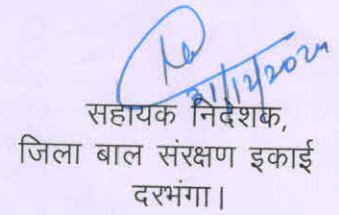 31/12/2024
सहायक निदेशक,
जिला बाल संरक्षण इकाई
दरभंगा।